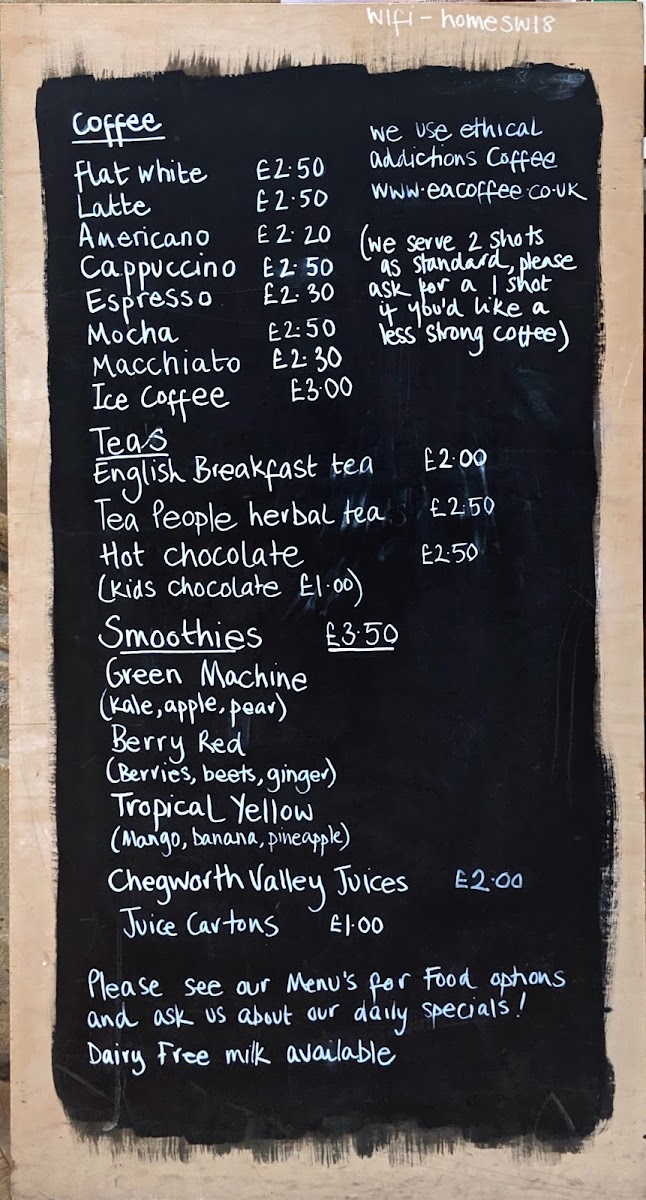 wifi - homesw18
Coffee
Flat white £2.50
Latte £2.50
Americano £2.20
Cappuccino £2.50
Espresso £2.30
Mocha £2.50
Macchiato £2.30
Ice Coffee £3.00
we use ethical
addictions Coffee
www.eacoffee.co.uk
(we serve 2 shots
as standard, please
ask for a 1 shot
if you'd like a
less strong coffee)
Teas
English Breakfast tea £2.00
Tea People herbal tea £2.50
Hot chocolate £2.50
(kids chocolate £1.00)
Smoothies £3.50
Green Machine
(kale, apple, pear)
Berry Red
(Berries, beets, ginger)
Tropical Yellow
(Mango, banana, pineapple)
Chegworth Valley Juices £2.00
Juice Cartons £1.00
Please see our Menu's for Food options
and ask us about our daily specials!
Dairy Free milk available